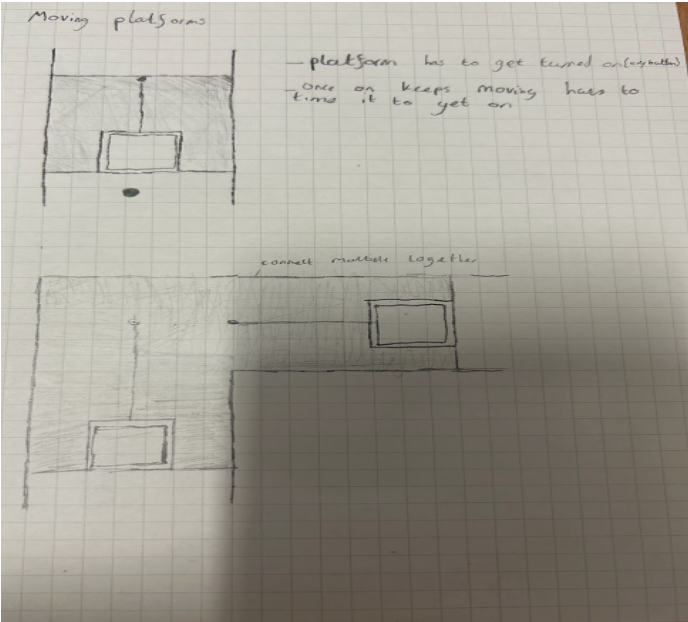 Moving platforms
- platform has to get turned on (via button)
- once on keeps moving has to
time it to get on
connect multiple together